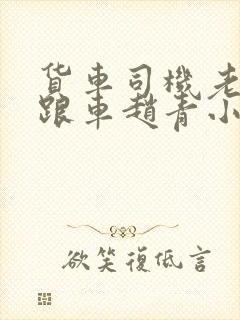 货車司機老
跟車趙青小
欲笑復低言